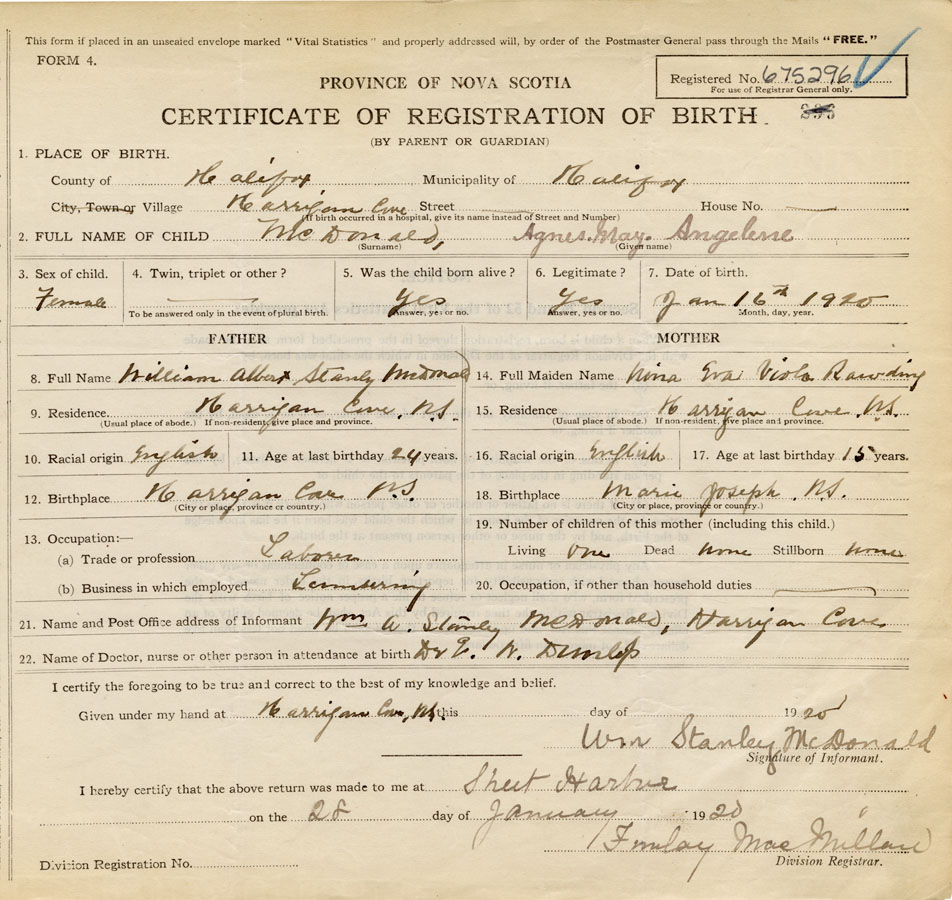 This form if placed in an unsealed envelope marked "Vital Statistics" and properly addressed will, by order of the Postmaster General pass through the Mails "FREE."
FORM 4.
Registered No. 675296
For use of Registrar General only.
PROVINCE OF NOVA SCOTIA
CERTIFICATE OF REGISTRATION OF BIRTH
(BY PARENT OR GUARDIAN)
1. PLACE OF BIRTH.
County of Halifax Municipality of Halifax
City, Town or Village Harrigan Cove Street House No.
(If birth occurred in a hospital, give its name instead of Street and Number)
2. FULL NAME OF CHILD McDonald, Agnes May Angelene
(Surname) (Given name)
3. Sex of child. 4. Twin, triplet or other? 5. Was the child born alive? 6. Legitimate? 7. Date of birth.
Female Yes Yes Jan 16th 1920
To be answered only in the event of plural birth. Answer, yes or no. Answer, yes or no. Month, day, year.
FATHER MOTHER
8. Full Name William Albert Stanly McDonald 14. Full Maiden Name Nina Eva Viola Rawding
9. Residence Harrigan Cove, N.S. 15. Residence Harrigan Cove N.S.
(Usual place of abode.) If non-resident, give place and province. (Usual place of abode.) If non-resident, give place and province.
10. Racial origin English 11. Age at last birthday 24 years. 16. Racial origin English 17. Age at last birthday 15 years.
12. Birthplace Harrigan Cove N.S. 18. Birthplace Marie Joseph N.S.
(City or place, province or country.) (City or place, province or country.)
13. Occupation:— 19. Number of children of this mother (including this child.)
(a) Trade or profession Laborer Living One Dead none Stillborn none
(b) Business in which employed Lumbering 20. Occupation, if other than household duties
21. Name and Post Office address of Informant Wm A. Stanley McDonald, Harrigan Cove
22. Name of Doctor, nurse or other person in attendance at birth Dr Dunlop
I certify the foregoing to be true and correct to the best of my knowledge and belief.
Given under my hand at Harrigan Cove, N.S. this day of 1920
Wm Stanley McDonald
Signature of Informant.
I hereby certify that the above return was made to me at Sheet Harbor
on the 28 day of January 1920
Finlay MacMillan
Division Registrar.
Division Registration No.